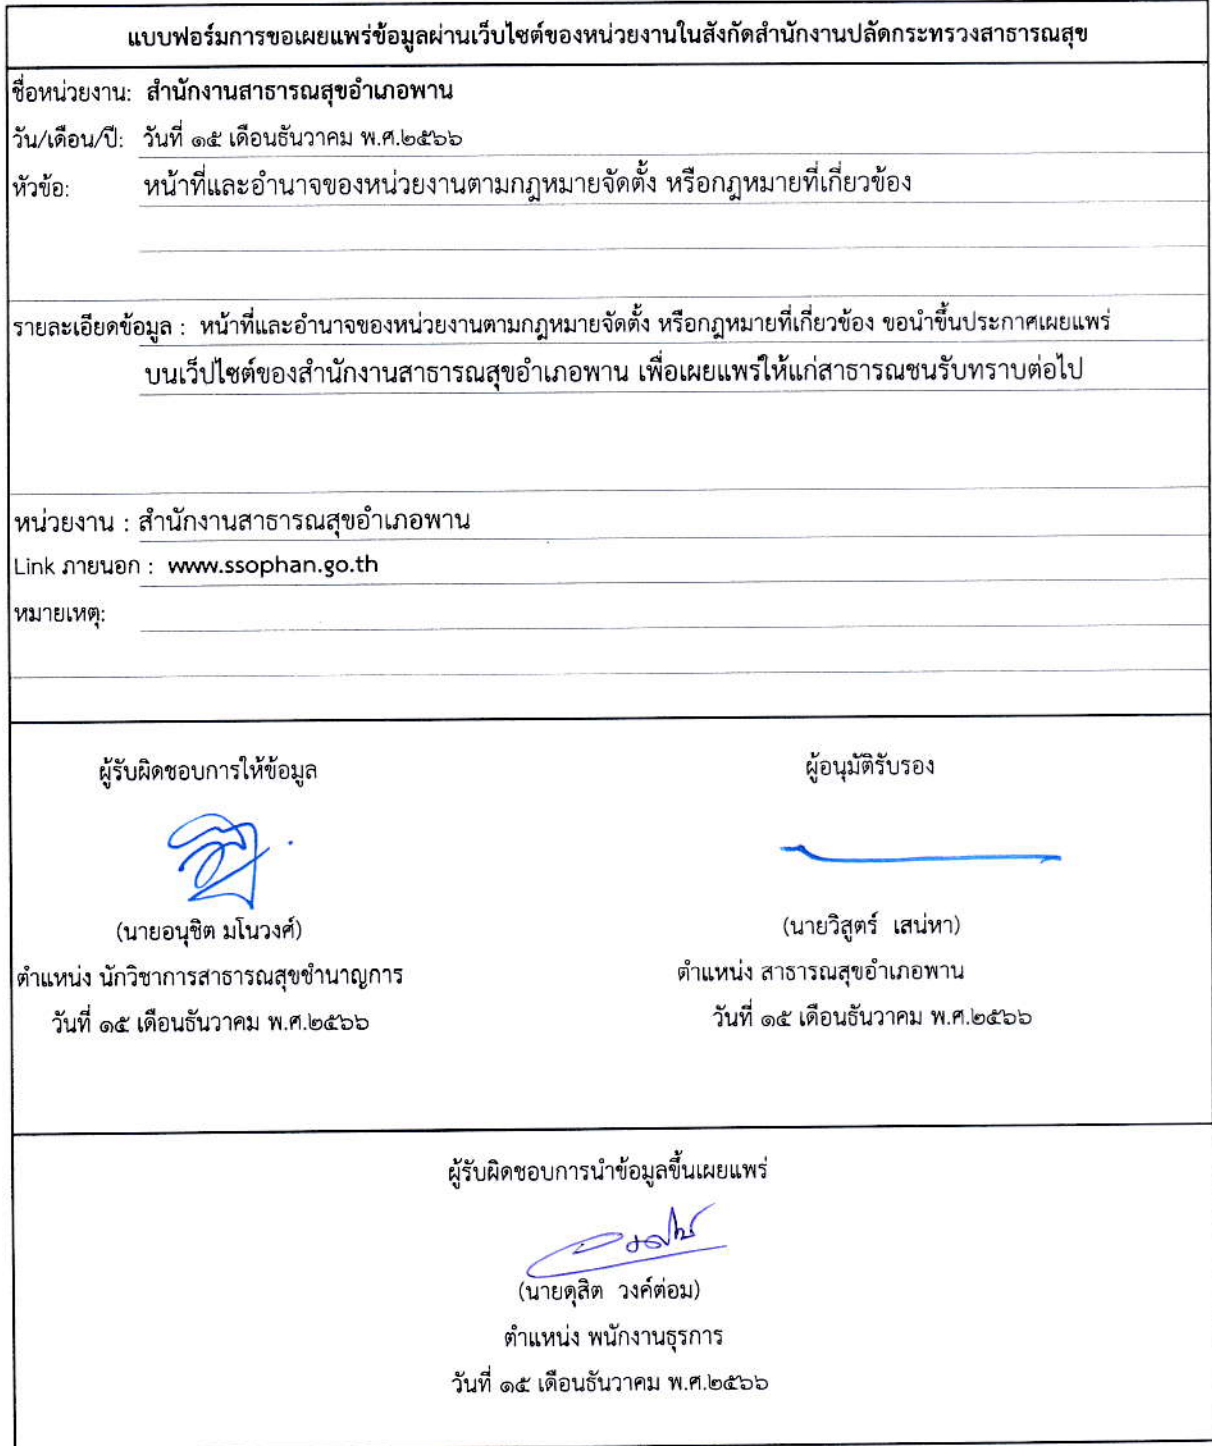 แบบฟอร์มการขอเผยแพร่ข้อมูลผ่านเว็บไซต์ของหน่วยงานในสังกัดสำนักงานปลัดกระทรวงสาธารณสุข
ชื่อหน่วยงาน: สำนักงานสาธารณสุขอำเภอพาน
วัน/เดือน/ปี: วันที่ ๑๕ เดือนธันวาคม พ.ศ.๒๕๖๖
หัวข้อ: หน้าที่และอำนาจของหน่วยงานตามกฎหมายจัดตั้ง หรือกฎหมายที่เกี่ยวข้อง
รายละเอียดข้อมูล : หน้าที่และอำนาจของหน่วยงานตามกฎหมายจัดตั้ง หรือกฎหมายที่เกี่ยวข้อง ขอนำขึ้นประกาศเผยแพร่
บนเว็ปไซต์ของสำนักงานสาธารณสุขอำเภอพาน เพื่อเผยแพร่ให้แก่สาธารณชนรับทราบต่อไป
หน่วยงาน : สำนักงานสาธารณสุขอำเภอพาน
Link ภายนอก : www.ssophan.go.th
หมายเหตุ:
ผู้รับผิดชอบการให้ข้อมูล
(นายอนุชิต มโนวงศ์)
ตำแหน่ง นักวิชาการสาธารณสุขชำนาญการ
วันที่ ๑๕ เดือนธันวาคม พ.ศ.๒๕๖๖
ผู้อนุมัติรับรอง
(นายวิสูตร์ เสน่หา)
ตำแหน่ง สาธารณสุขอำเภอพาน
วันที่ ๑๕ เดือนธันวาคม พ.ศ.๒๕๖๖
ผู้รับผิดชอบการนำข้อมูลขึ้นเผยแพร่
(นายดุสิต วงค์ต่อม)
ตำแหน่ง พนักงานธุรการ
วันที่ ๑๕ เดือนธันวาคม พ.ศ.๒๕๖๖